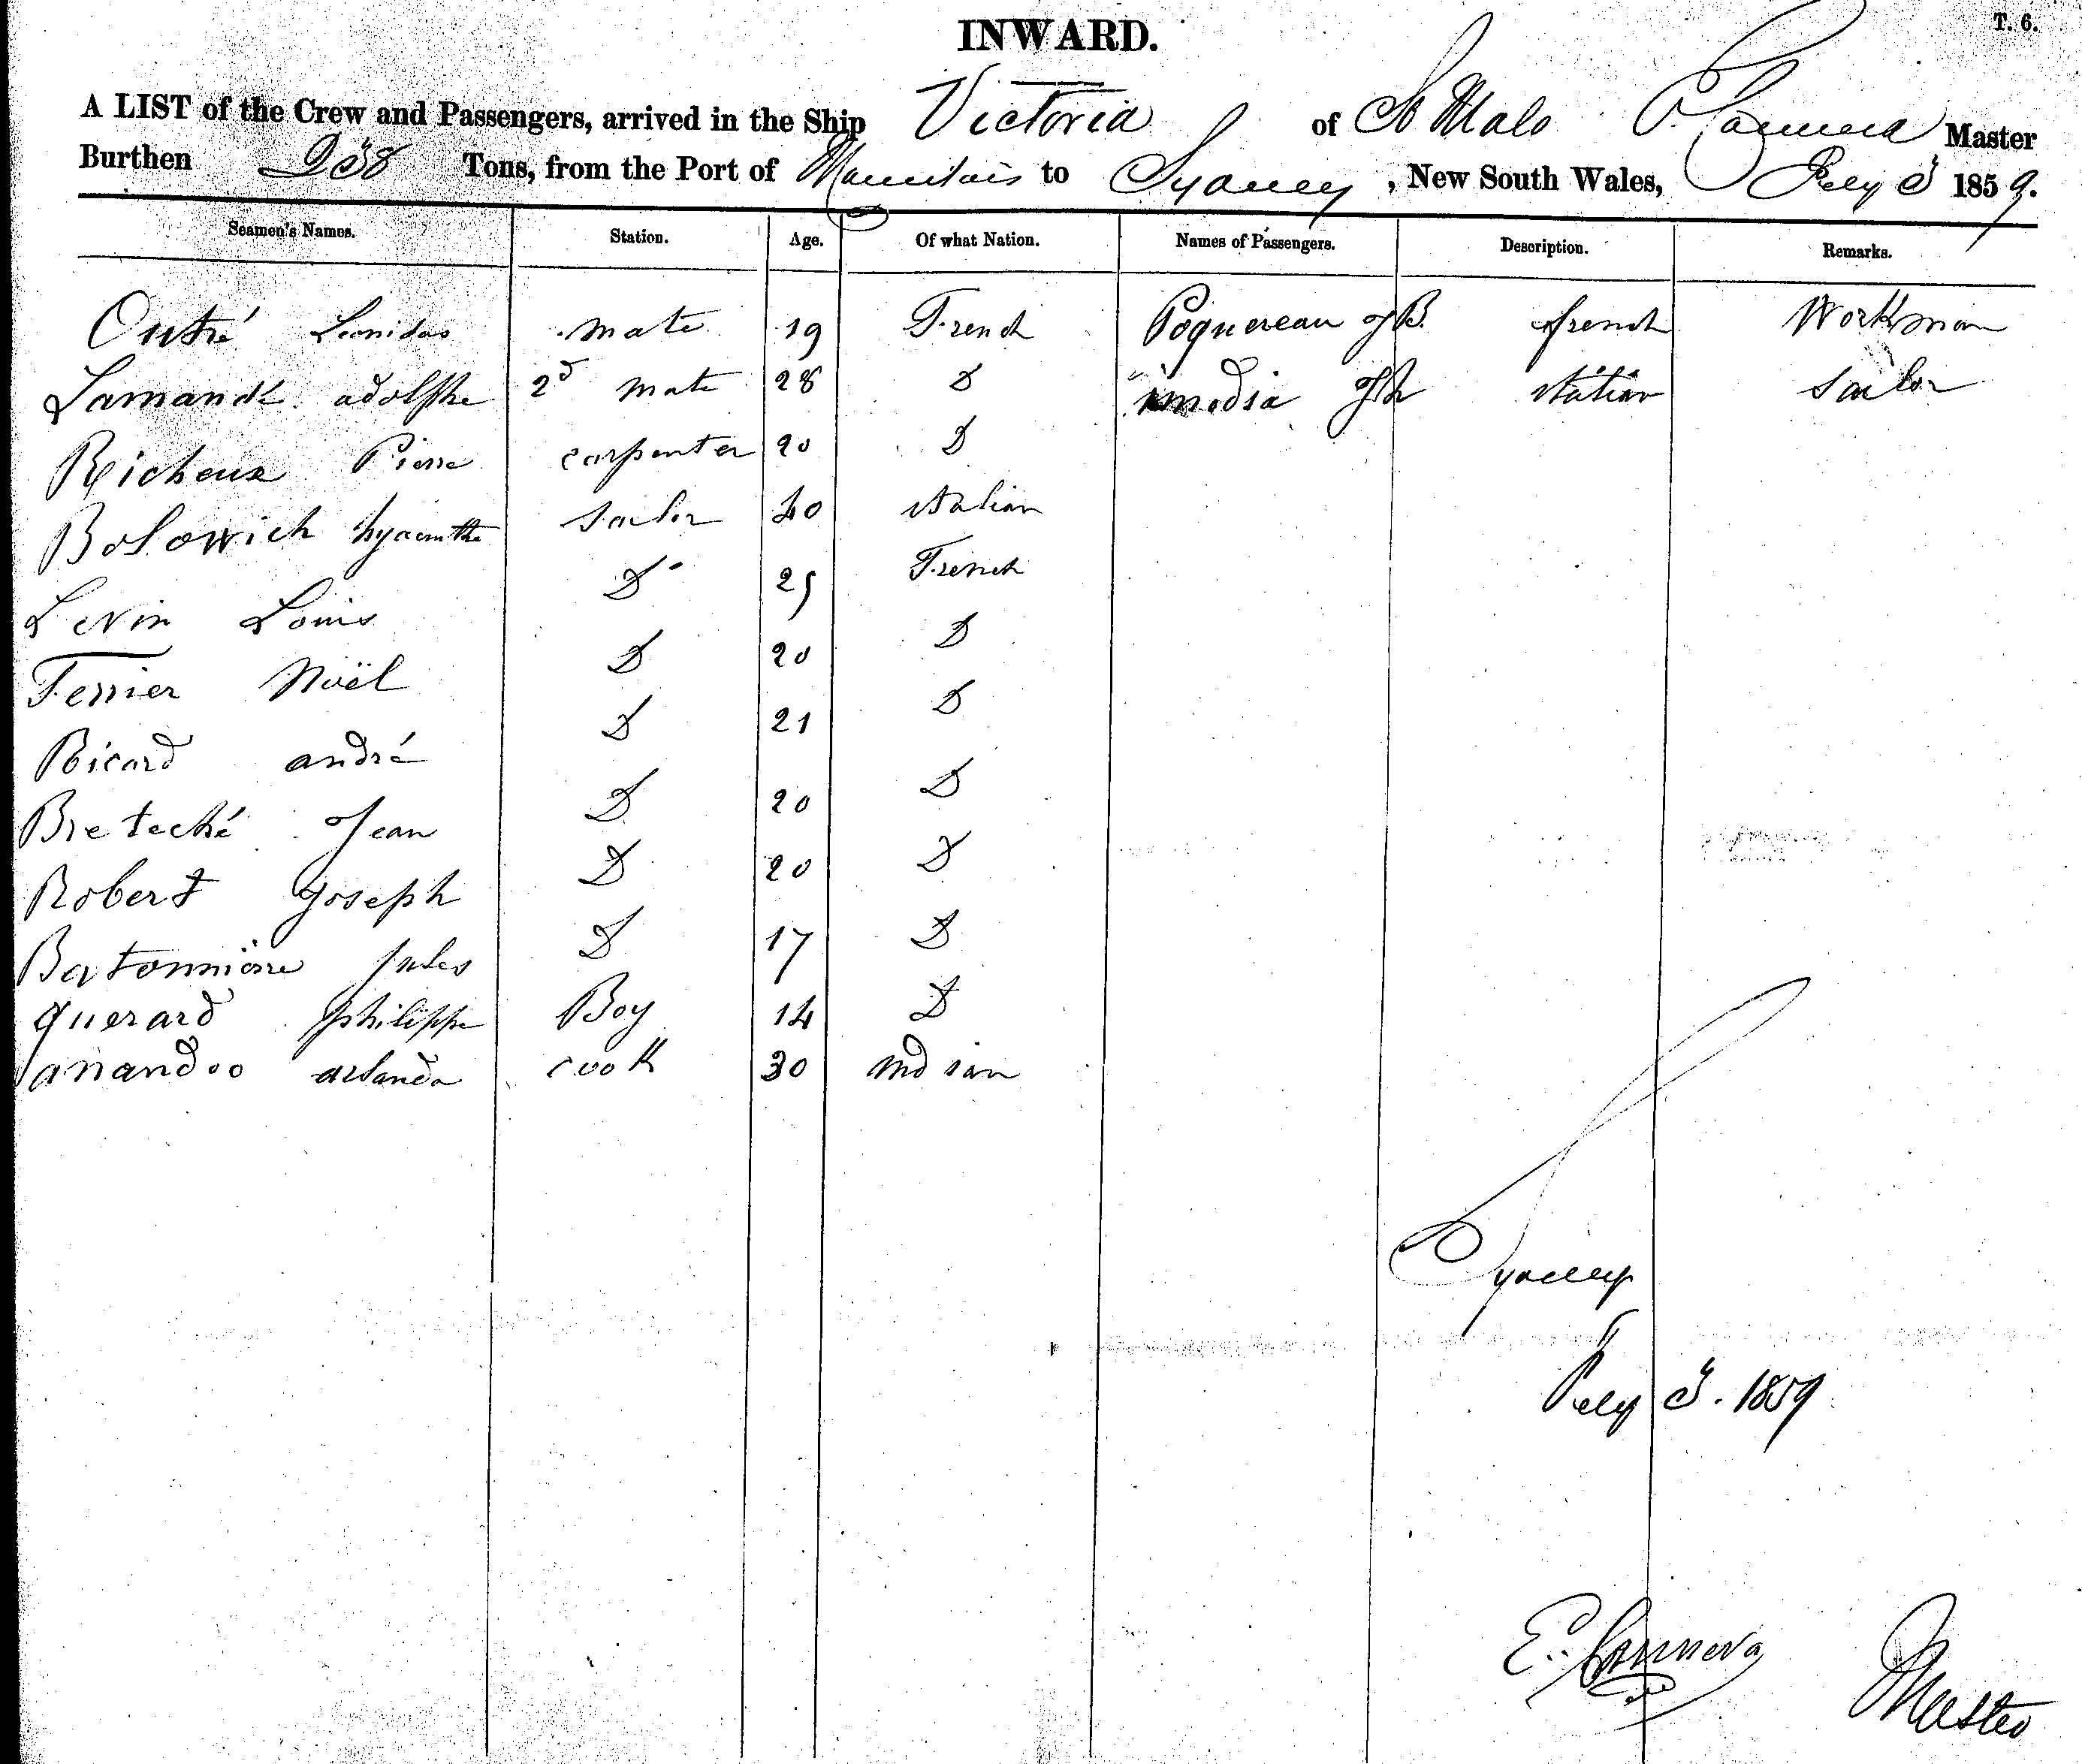 T. 6.
INWARD.
A LIST of the Crew and Passengers, arrived in the Ship Victoria of St Malo Master
Burthen 238 Tons, from the Port of to Sydney, New South Wales, 1859.
Seamen's Names. Station. Age. Of what Nation. Names of Passengers. Description. Remarks.
Outré Leonidas mate 19 French french Workman
adolphe 2d mate 28 D sailor
Richeux Pierre carpenter 20 D
hyacinthe sailor 40 italian
Levin Louis D 25 French
Terrier Noël D 20 D
Ricard andré D 21 D
Breteché Jean D 20 D
Robert Joseph D 20 D
Jules D 17 D
querard philippe Boy 14 D
anandoo cook 30 indian
Sydney
1859
E.
Master